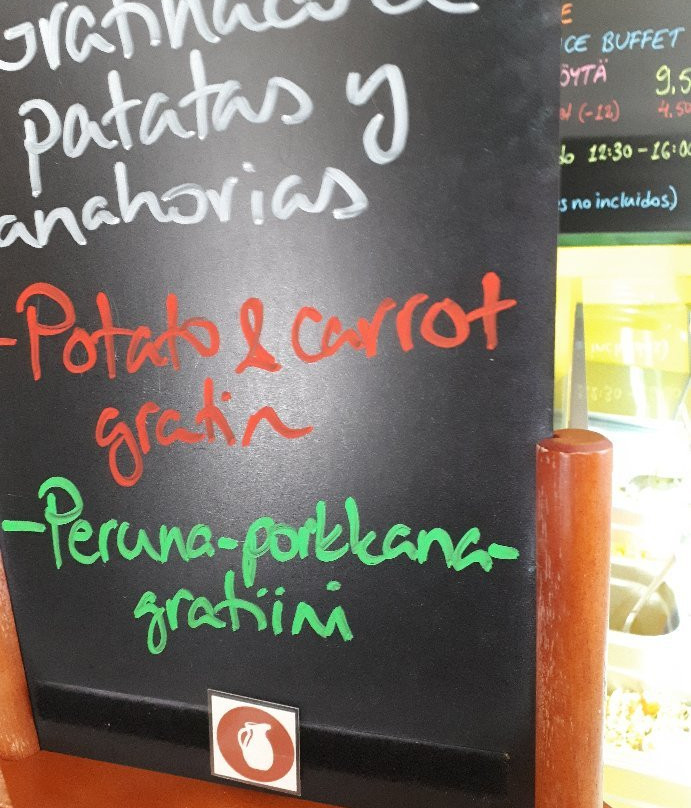 patatas y
anahorias
-Potato & carrot
gratin
-Peruna-porkkana-
gratiini
E
ICE BUFFET
ÖYTÄ 9,5
(-12) 4,50
12:30-16:00
s no incluidos)